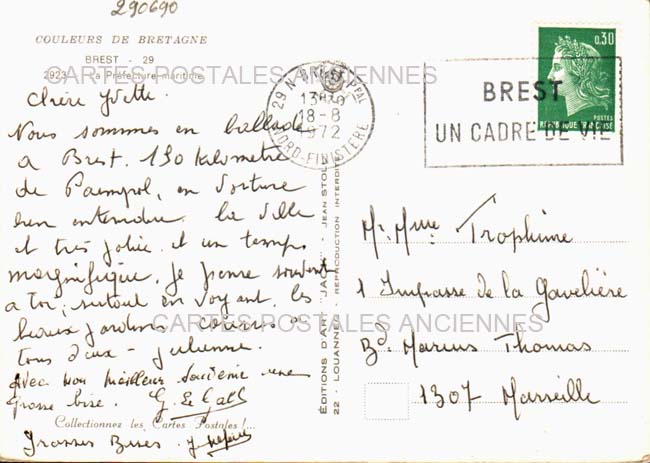 290690
COULEURS DE BRETAGNE
BREST - 29
2923 - La Préfecture maritime
CARTES POSTALES ANCIENNES
Chère Yvette.
Nous sommes en ballade
a Brest. 130 kilometre
de Paempol, en voiture
bien entendue. La ville
et très jolie. et un temps
magnifique. Je pense souvent
a toi, surtout en voyant, les
beaux jardins. courage a
tous deux - Julienne.
avec mon meilleur souvenir une
grosse bise. G. Le Gall
Collectionnez les Cartes Postales !...
Grosses Bises.
29 N. BREST PPAL
13H
18-8
1972
NORD-FINISTERE
BREST
UN CADRE DE VIE
0,30
POSTES
REPUBLIQUE FRANÇAISE
ÉDITIONS D'ART "JACK" - JEAN
22 - LOUANNEC - REPRODUCTION INTERDITE
Mr. Mme Trophime
1 Impasse de la Gavelière
Bd. Marius Thomas
1307 Marseille
CARTES POSTALES ANCIENNES